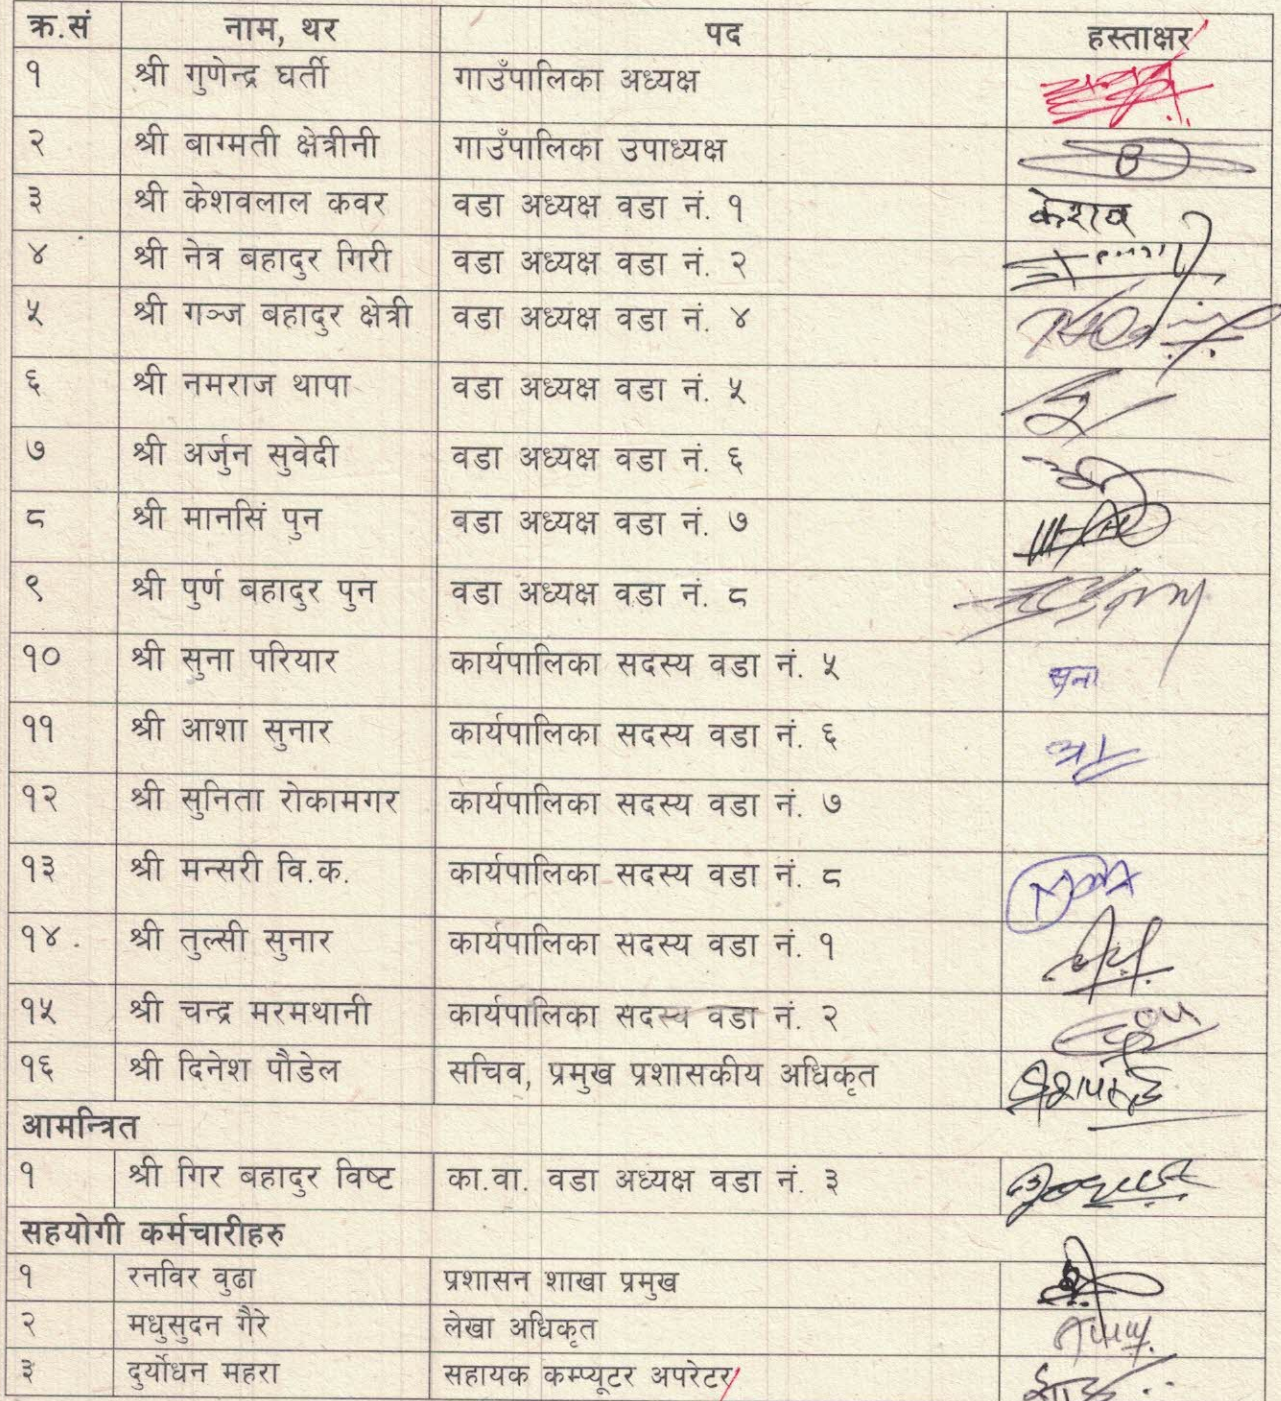 क्र.सं नाम, थर पद हस्ताक्षर
१ श्री गुणेन्द्र घर्ती गाउँपालिका अध्यक्ष
२ श्री बाग्मती क्षेत्रीनी गाउँपालिका उपाध्यक्ष
३ श्री केशवलाल कवर वडा अध्यक्ष वडा नं. १ केशव
४ श्री नेत्र बहादुर गिरी वडा अध्यक्ष वडा नं. २
५ श्री गञ्ज बहादुर क्षेत्री वडा अध्यक्ष वडा नं. ४
६ श्री नमराज थापा वडा अध्यक्ष वडा नं. ५
७ श्री अर्जुन सुवेदी वडा अध्यक्ष वडा नं. ६
८ श्री मानसिं पुन वडा अध्यक्ष वडा नं. ७
९ श्री पुर्ण बहादुर पुन वडा अध्यक्ष वडा नं. ८
१० श्री सुना परियार कार्यपालिका सदस्य वडा नं. ५ सुना
११ श्री आशा सुनार कार्यपालिका सदस्य वडा नं. ६
१२ श्री सुनिता रोकामगर कार्यपालिका सदस्य वडा नं. ७
१३ श्री मन्सरी वि.क. कार्यपालिका सदस्य वडा नं. ८
१४. श्री तुल्सी सुनार कार्यपालिका सदस्य वडा नं. १
१५ श्री चन्द्र मरमथानी कार्यपालिका सदस्य वडा नं. २
१६ श्री दिनेश पौडेल सचिव, प्रमुख प्रशासकीय अधिकृत
आमन्त्रित
१ श्री गिर बहादुर विष्ट का.वा. वडा अध्यक्ष वडा नं. ३
सहयोगी कर्मचारीहरु
१ रनविर वुढा प्रशासन शाखा प्रमुख
२ मधुसुदन गैरे लेखा अधिकृत
३ दुर्योधन महरा सहायक कम्प्यूटर अपरेटर